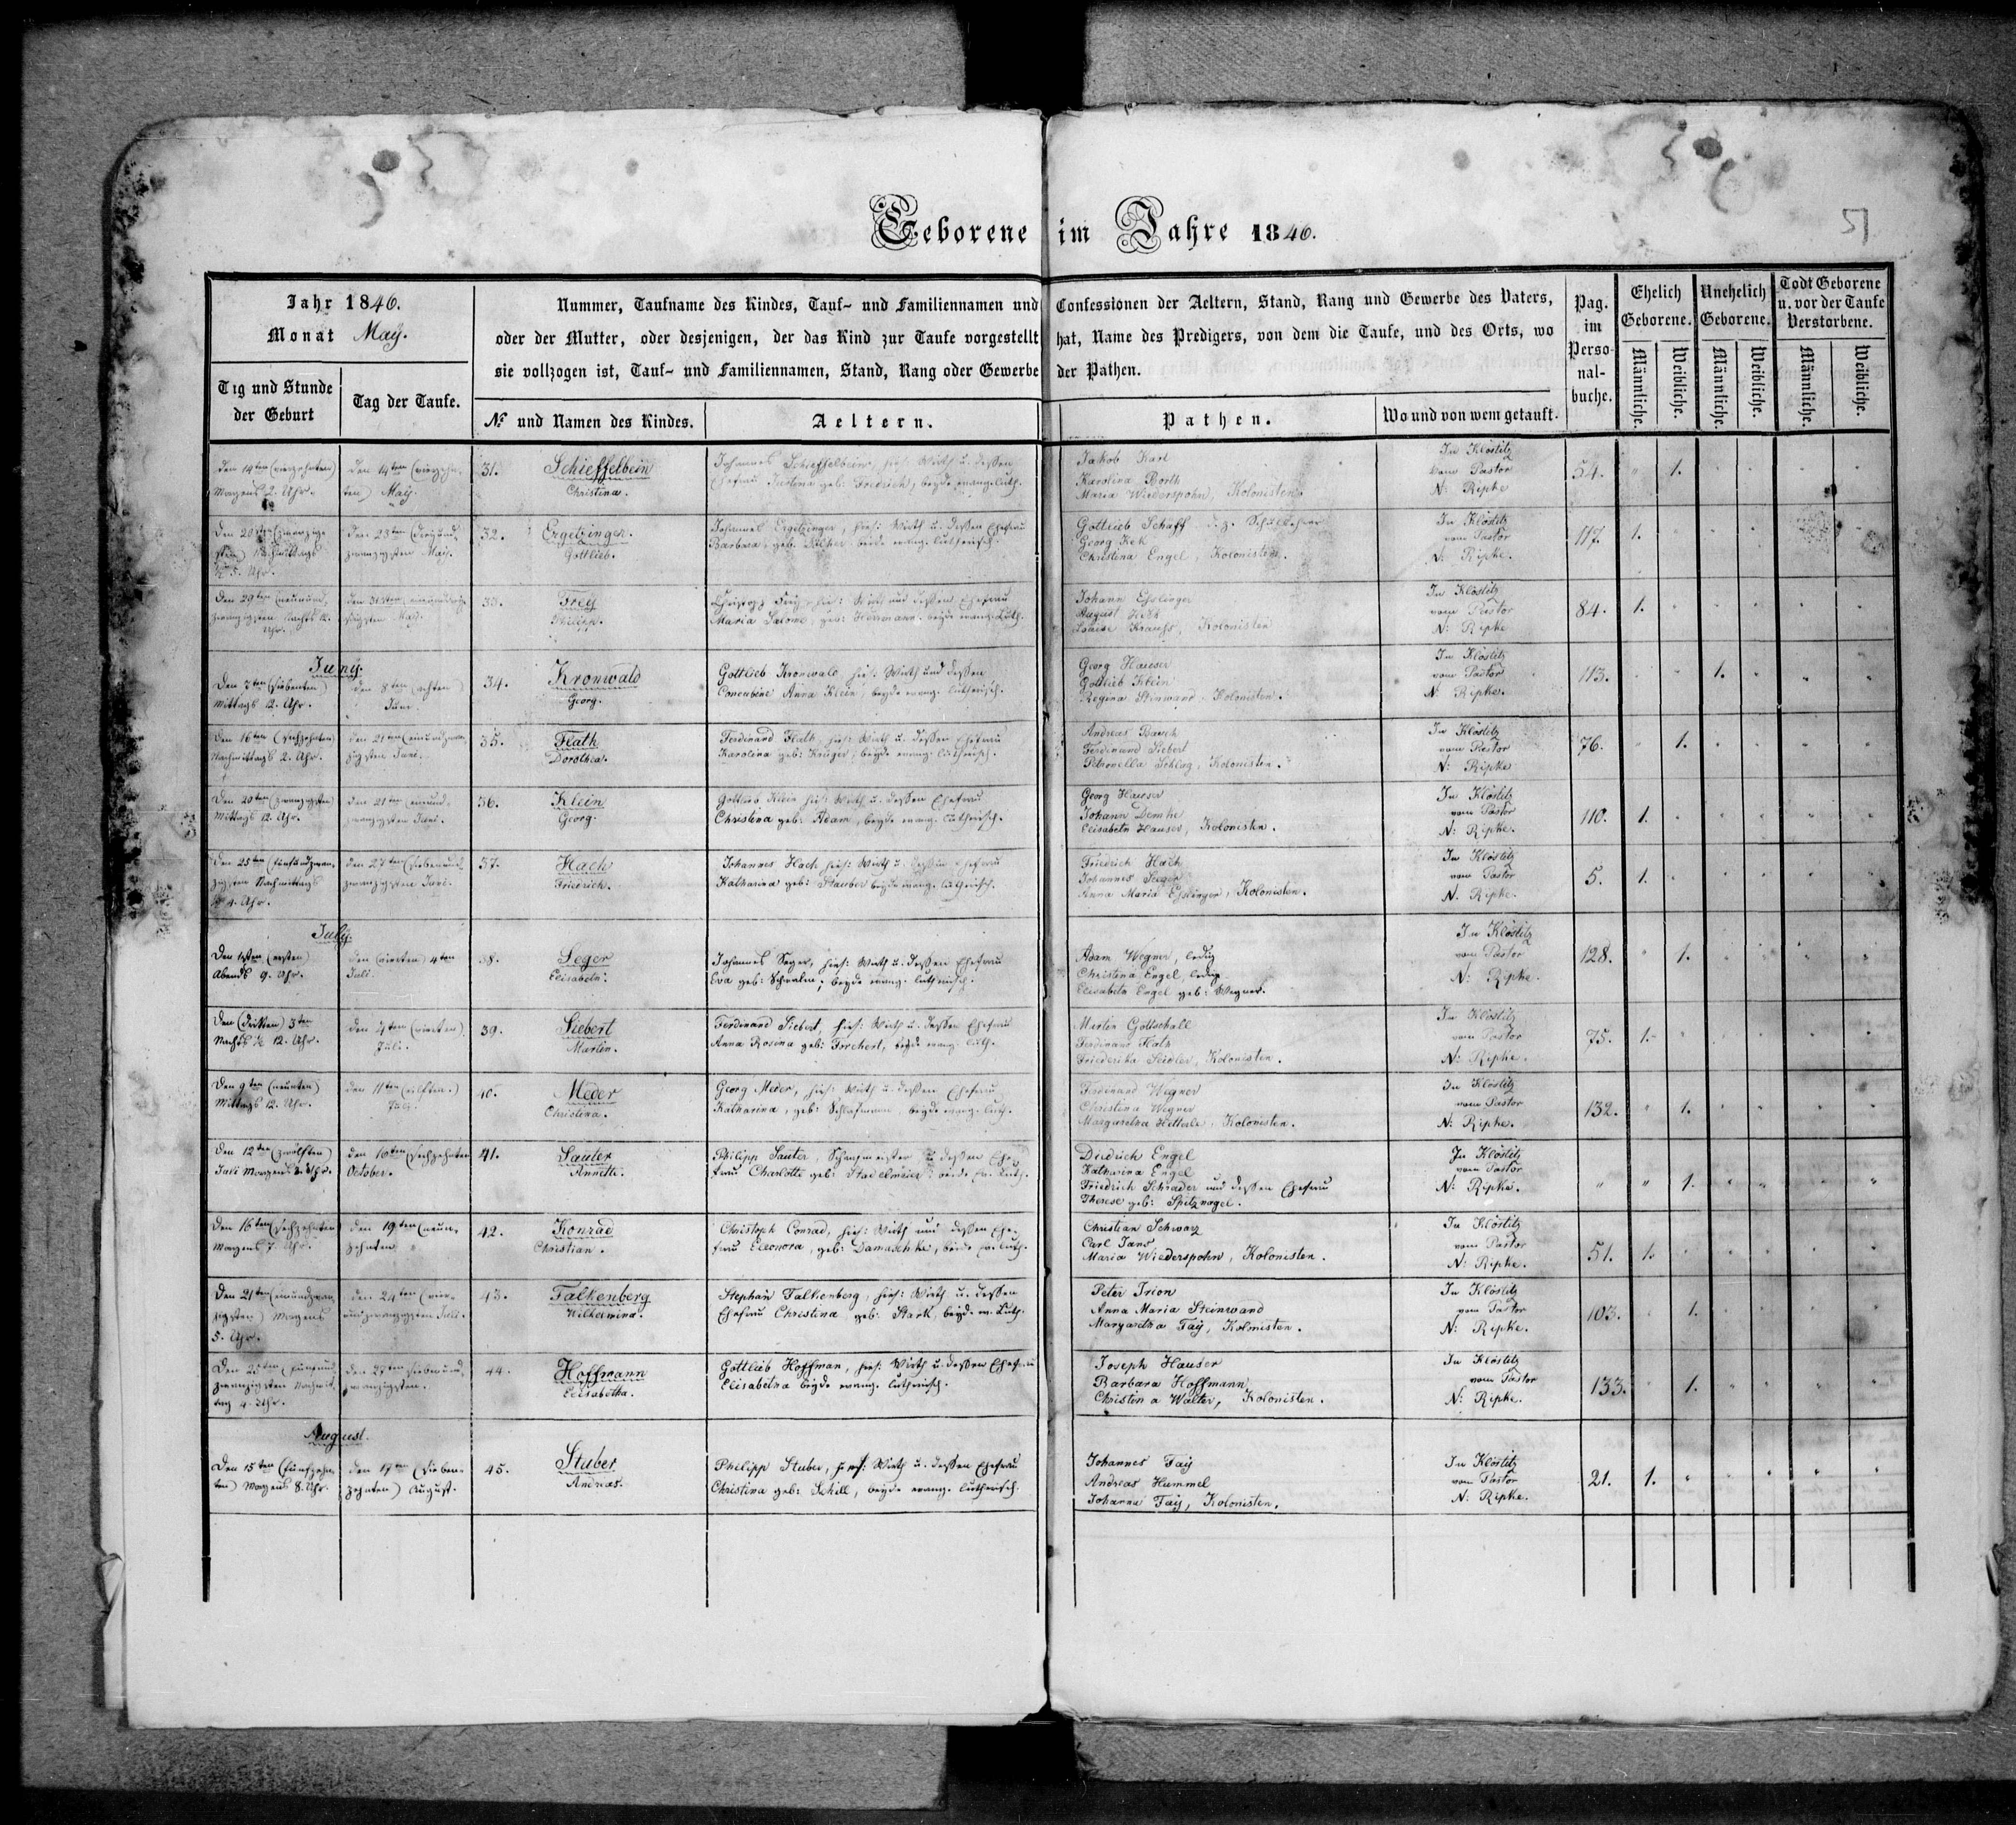 Geborene im Jahre 1846.
51
Jahr 1846.
Monat May.
Tag und Stunde
der Geburt
Tag der Taufe.
Nummer, Taufname des Kindes, Tauf- und Familiennamen und Confessionen der Aeltern, Stand, Rang und Gewerbe des Vaters,
oder der Mutter, oder desjenigen, der das Kind zur Taufe vorgestellt hat, Name des Predigers, von dem die Taufe, und des Orts, wo
sie vollzogen ist, Tauf- und Familiennamen, Stand, Rang oder Gewerbe der Pathen.
No und Namen des Kindes.
Aeltern.
Pathen.
Wo und von wem getauft.
Pag.
im
Perso-
nal-
buche.
Ehelich
Geborene.
Unehelich
Geborene.
Todt Geborene
u. vor der Taufe
Verstorbene.
Männliche.
Weibliche.
Männliche.
Weibliche.
Männliche.
Weibliche.
Den 14ten (vierzehnten)
Morgens 2. Uhr.
den 14ten (vierzehn-
ten) May.
31. Schieffelbein
Christina.
Johannes Schieffelbein, hies: Wirth u. dessen
Ehefrau Justina geb: Fredrich, beyde evang. luth.
Jakob Karl
Karolina Borth
Maria Wiederspohn, Kolonisten.
In Klöstitz
vom Pastor
N: Ripke
54. " 1.
Den 20sten (zwanzig-
sten)
½ 5. Uhr.
Den 23ten (dreyund-
zwanzigsten May.
32. Ergetzinger.
Gottlieb.
Johannes Ergetzinger, hies: Wirth u. dessen Ehefrau
Barbara, geb: beide evang. lutherisch.
Gottlieb Schaff d. z. Schullehrer
Georg Kek
Christina Engel, Kolonisten.
In Klöstitz
vom Pastor
N: Ripke.
117. 1.
Den 29ten (neunund-
zwanzigsten Nachts 12.
Uhr.
den 31sten (einunddrei-
ßigsten May.
33. Frey
Philipp.
Christoph Frey, hies: Wirth und dessen Ehefrau
Maria Salome, geb: Herrmann, beyde evang. Luth.
Johann Eßlinger
August
Louise Krauß, Kolonisten
In Klöstitz
vom Pastor
N: Ripke
84. 1.
Juny.
Den 7ten (siebenten)
Mittags 12. Uhr.
den 8ten (achten)
Juni.
34. Kronwald
Georg.
Gottlieb Kronwald hies: Wirth und dessen
Concubine Anna Klein, beyde evang. lutherisch.
Georg Hauser
Gottlieb Klein
Regina Steinwand. Kolonisten.
In Klöstitz
vom Pastor
N: Ripke.
113. 1.
Den 16ten (sechzehnten)
Nachmittags 2. Uhr.
den 21ten (einundzwan-
zigsten Juni.
35. Flath
Dorothea.
Ferdinand Flath, hies: Wirth u. dessen Ehefrau
Karolina geb: Krüger, beyde evang. lutherisch.
Andreas Bäsch
Ferdinand Siebert
Petronella Schlag, Kolonisten.
In Klöstitz
vom Pastor
N: Ripke
76. 1.
Den 20ten (zwanzigsten)
Mittags 12. Uhr.
den 21ten (einund-
zwanzigsten Juni.
36. Klein
Georg.
Gottlieb Klein hies: Wirth u. dessen Ehefrau
Christina geb: Adam, beyde evang. lutherisch.
Georg Hauser
Johann Demke
Elisabeth Hauser, Kolonisten.
In Klöstitz
vom Pastor
N: Ripke.
110. 1.
Den 25ten (fünfundzwan-
zigsten Nachmittags
½ 4. Uhr.
den 27ten (siebenund-
zwanzigsten Juni.
37. Hach
Friedrich.
Johannes Hach, hies: Wirth u. dessen Ehefrau
Katharina geb: Stauber beyde evang. lutherisch.
Friedrich Hach
Johannes Seeger
Anna Maria Eßlinger, Kolonisten.
In Klöstitz
vom Pastor
N. Ripke.
5. 1.
July.
Den 1sten (ersten)
Abends 9. Uhr.
den (vierten) 4ten
Juli.
38. Seger
Elisabeth.
Johannes Seger, hies: Wirth u. dessen Ehefrau
Eva geb: Schwalm, beyde evang. lutherisch.
Adam Wegner, ledig
Christina Engel ledig
Elisabeth Engel geb: Wegner.
In Klöstitz
vom Pastor
N: Ripke.
128. " 1.
Den (dritten) 3ten
Nachts ½ 12. Uhr.
den 4ten (vierten)
Juli.
39. Siebert
Martin.
Ferdinand Siebert, hies: Wirth u. dessen Ehefrau
Anna Rosina geb: Forchert, beyde evang. luth.
Martin Gottschall
Ferdinand Flath
Friederika Seidler, Kolonisten.
In Klöstitz
vom Pastor
N: Ripke.
75. 1.
Den 9ten (neunten)
Mittags 12. Uhr.
den 11ten (eilften.)
July.
40. Meder
Christina.
Georg Meder, hies: Wirth u. dessen Ehefrau
Katharina, geb: Schlafmann, beyde evang. luth.
Ferdinand Wegner
Christina Wegner
Margaretha Hetterle, Kolonisten.
In Klöstitz
vom Pastor
N: Ripke.
132. " 1.
Den 12ten (zwölften)
Juli Morgens 2. Uhr.
den 16ten (sechzehnten
October.
41. Sauter
Annette.
Philipp Sauter, Schafmeister u. dessen Ehe-
frau Charlotte geb: Stadelmeier; beide ev. luth.
Diedrich Engel
Katharina Engel
Friedrich Schrader und dessen Ehefrau
Therese geb: Spitznagel.
In Klöstitz
vom Pastor
N: Ripke.
" " 1.
Den 16ten (sechzehnten
Morgens 7. Uhr.
den 19ten (neun-
zehnten
42. Konrad
Christian.
Christoph Conrad, hies: Wirth und dessen Ehe-
frau Eleonora, geb: Damaschke, beide ev: luth.
Christian Schwarz
Carl Jans
Maria Wiederspohn, Kolonisten.
In Klöstitz
vom Pastor
N: Ripke.
51. 1.
Den 21ten (einundzwan-
zigsten) Morgens
5. Uhr.
den 24ten (vier-
undzwanzigsten Juli.
43. Falkenberg
Wilhelmina.
Stephan Falkenberg, hies: Wirth u. dessen
Ehefrau Christina geb: Stark, beyde ev. Luth.
Peter Irion
Anna Maria Steinwand
Margaretha Fay, Kolonisten.
In Klöstitz
vom Pastor
N: Ripke.
103. 1.
Den 25ten (fünfund-
zwanzigsten Nachmit-
tag 4. Uhr.
den 27ten (siebenund-
zwanzigsten.
44. Hoffmann
Elisabetha.
Gottlieb Hoffman, hies: Wirth u. dessen Ehefrau
Elisabetha beyde evang. lutherisch.
Joseph Hauser
Barbara Hoffmann
Christina Walter, Kolonisten.
In Klöstitz
vom Pastor
N: Ripke.
133. 1.
August.
Den 15ten (fünfzehn-
ten) Morgens 8. Uhr.
den 17ten (sieben-
zehnten) August.
45. Stuber
Andreas.
Philipp Stuber, hies: Wirth u. dessen Ehefrau
Christina geb: Schill, beyde evang. lutherisch.
Johannes Fay
Andreas Hummel
Johanna Fay, Kolonisten.
In Klöstitz
vom Pastor
N: Ripke.
21. 1.